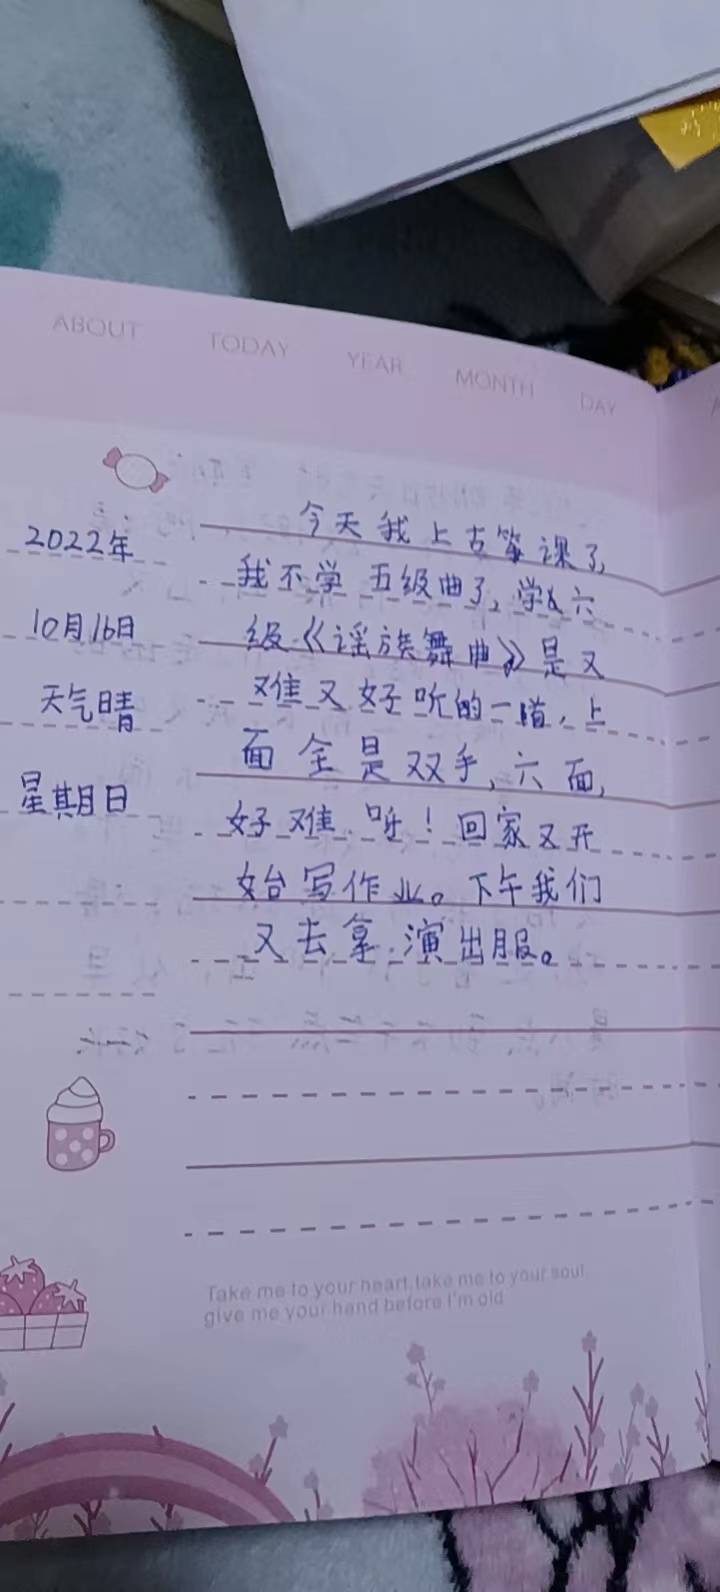 ABOUT TODAY YEAR MONTH DAY
2022年
10月16日
天气晴
星期日
今天我上古筝课了,
我不学五级曲了,学六
级《瑶族舞曲》是又
难又好听的一首,上
面全是双手,六面,
好难呀!回家又开
始写作业。下午我们
又去拿演出服。
Take me to your heart, take me to your soul,
give me your hand before I'm old